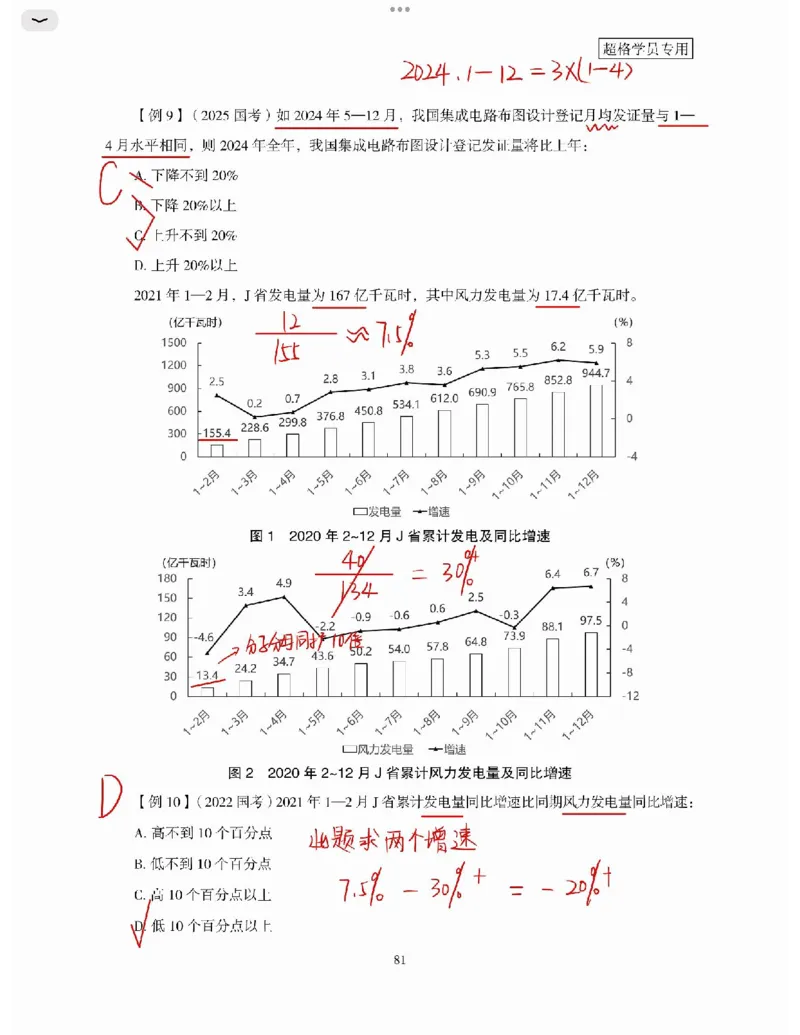 超格学员专用
2024.1-12=3×(1-4)
【例 9】（2025 国考）如 2024 年 5—12 月，我国集成电路布图设计登记月均发证量与 1—
4 月水平相同，则 2024 年全年，我国集成电路布图设计登记发证量将比上年：
C
A. 下降不到 20%
B. 下降 20%以上
C. 上升不到 20%
D. 上升 20%以上
2021 年 1—2 月，J 省发电量为 167 亿千瓦时，其中风力发电量为 17.4 亿千瓦时。
(亿千瓦时) 12/155≈7.5% (%)
1500 1200 900 600 300 0
8 4 0 -4
2.5 0.2 0.7 2.8 3.1 3.8 3.6 5.3 5.5 6.2 5.9
155.4 228.6 299.8 376.8 450.8 534.1 612.0 690.9 765.8 852.8 944.7
1~2月 1~3月 1~4月 1~5月 1~6月 1~7月 1~8月 1~9月 1~10月 1~11月 1~12月
发电量 增速
图 1 2020 年 2~12 月 J 省累计发电及同比增速
(亿千瓦时) 40/134=30%+ (%)
180 150 120 90 60 30 0
8 4 0 -4 -8 -12
-4.6 3.4 4.9 -2.2 -0.9 -0.6 0.6 2.5 -0.3 6.4 6.7
分子分母同扩10倍
13.4 24.2 34.7 43.6 50.2 54.0 57.8 64.8 73.9 88.1 97.5
1~2月 1~3月 1~4月 1~5月 1~6月 1~7月 1~8月 1~9月 1~10月 1~11月 1~12月
风力发电量 增速
图 2 2020 年 2~12 月 J 省累计风力发电量及同比增速
D
【例 10】（2022 国考）2021 年 1—2 月 J 省累计发电量同比增速比同期风力发电量同比增速：
A. 高不到 10 个百分点
B. 低不到 10 个百分点
C. 高 10 个百分点以上
D. 低 10 个百分点以上
此题求两个增速
7.5%-30%+=-20%+
81